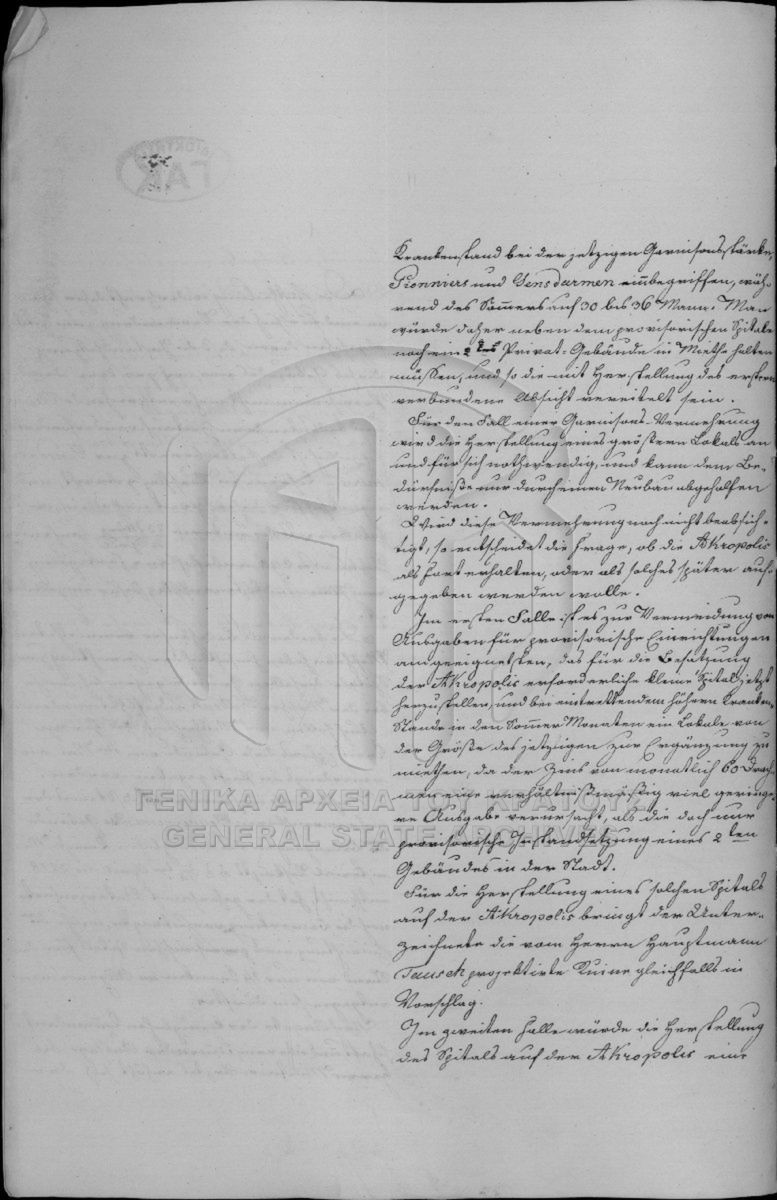 Krankenstand bei der jetzigen Garnisonsstärke,
Pionniers und Gensdarmen einbegriffen, wäh-
rend des Sommers auf 30 bis 36 Mann. Man
würde daher neben dem provisorischen Spitale
noch ein 2tes Privat-Gebäude in Miethe halten
müssen, und so die mit Herstellung des erstern
verbundene Absicht vereitelt sein.
Für den Fall einer Garnisons-Vermehrung
wird die Herstellung eines größern Lokals an
und für sich nothwendig, und kann dem Be-
dürfniße nur durch einen Neubau abgeholfen
werden.
Wird diese Vermehrung noch nicht beabsich-
tigt, so entscheidet die Frage, ob die Akropolis
als Fort erhalten, oder als solches später auf-
gegeben werden wolle.
Im ersten Falle ist es zur Vermeidung von
Ausgaben für provisorische Einrichtungen
am geeignetsten, das für die Besatzung
der Akropolis erforderliche kleine Spital jetzt
herzustellen, und bei eintrettendem höhern Kranken-
Stande in den Sommer Monaten ein Lokale von
der Größe des jetzigen zur Ergänzung zu
miethen, da der Zins von monatlich 60 Drach-
men eine verhältnißmäßig viel geringe-
re Ausgabe verursacht, als die doch nur
provisorische Instandsetzung eines 2ten
Gebäudes in der Stadt.
Für die Herstellung eines solchen Spitals
auf der Akropolis bringt der Unter-
zeichnete die vom Herrn Hauptmann
Tausch projektirte Ruine gleichfalls in
Vorschlag.
Im zweiten Falle würde die Herstellung
des Spitals auf der Akropolis eine
ΓΕΝΙΚΑ ΑΡΧΕΙΑ ΤΟΥ ΚΡΑΤΟΥΣ
GENERAL STATE ARCHIVES